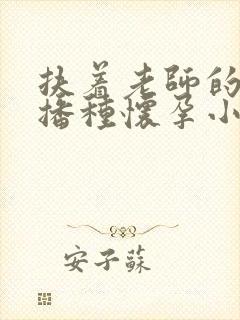 扶着老師的
播種懷孕小
安子蘇